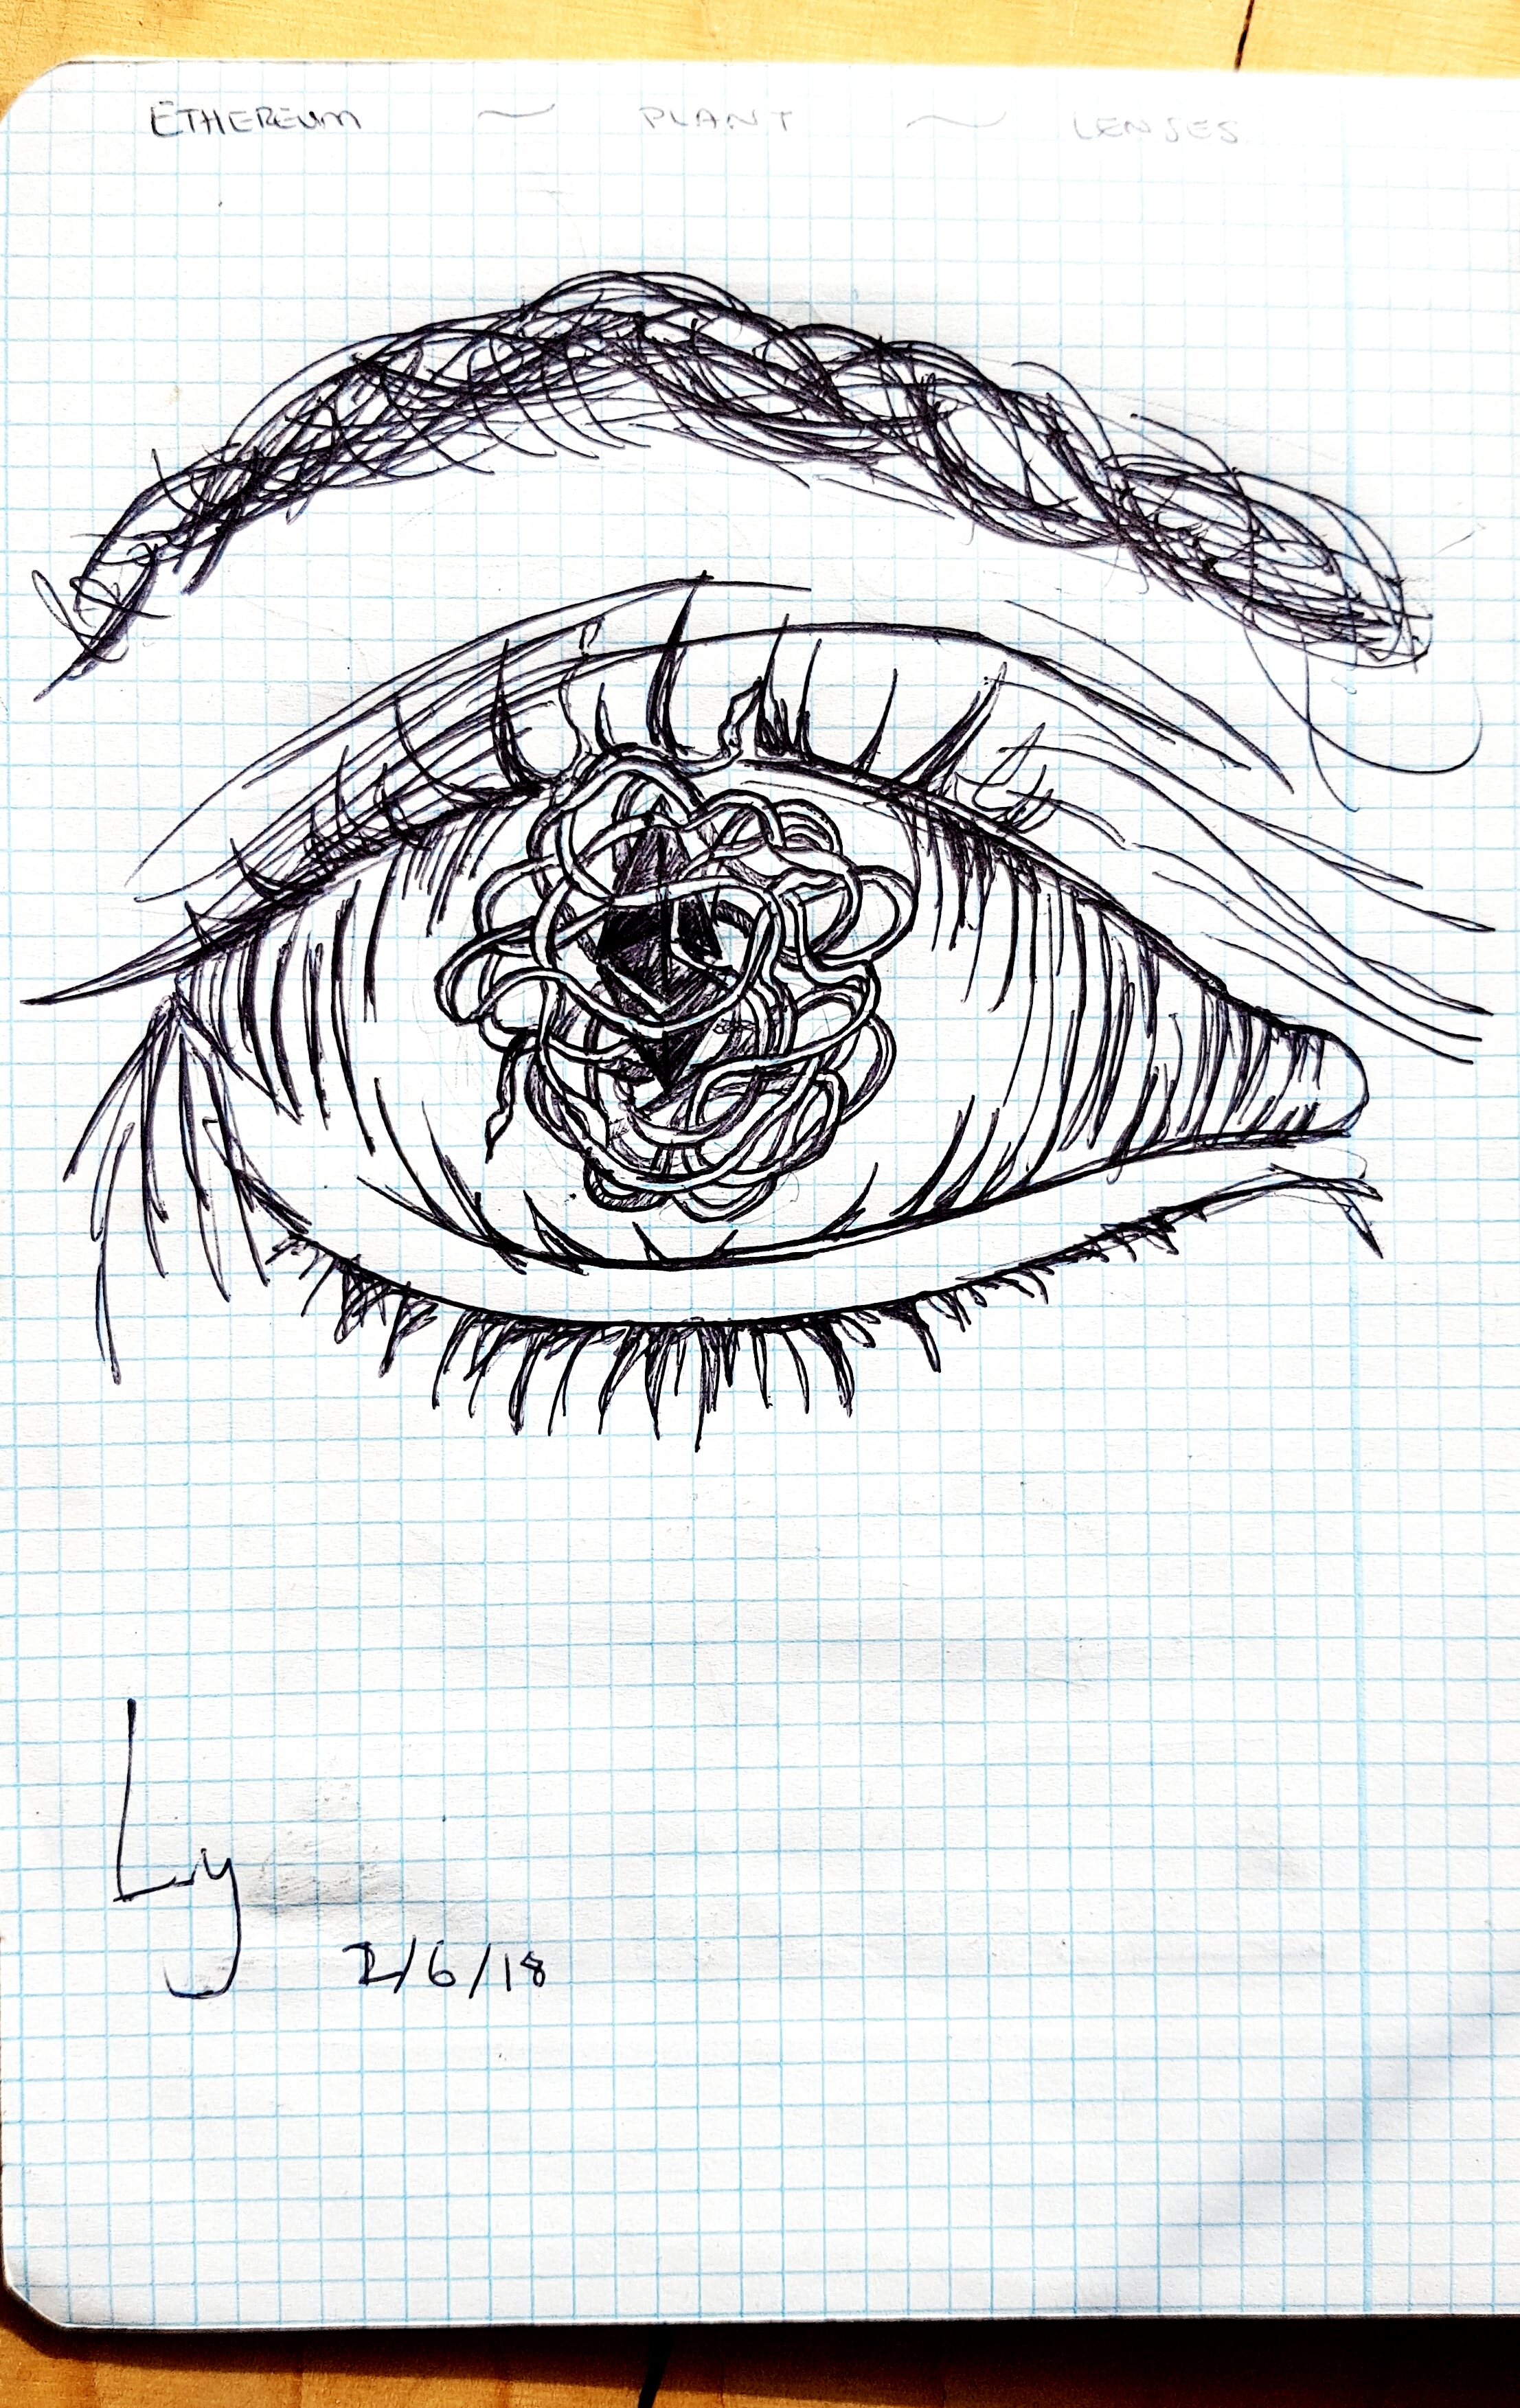 ETHEREUM ~ PLANT ~ LENSES
Ly
2/6/18